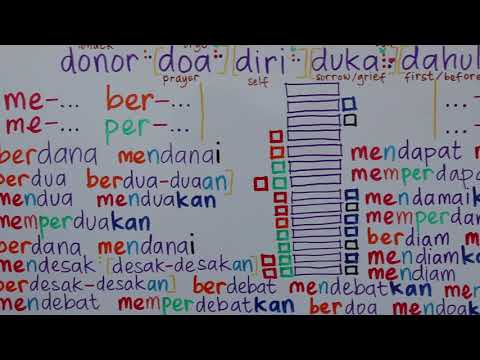 donor [doa] [diri] [duka] dahul
prayer self sorrow/grief first/before
me-... ber-... ...-
me-... per-... ...-
berdana mendanai mendapat
berdua berdua-duaan] memperdapa
mendua menduakan mendamai
memperduakan memperdam
berdana mendanai berdiam
mendesak [desak-desakan] mendiamka
berdesak-desakan] berdebat mendebatkan mendiam
mendebat memperdebatkan berdoa mendoak